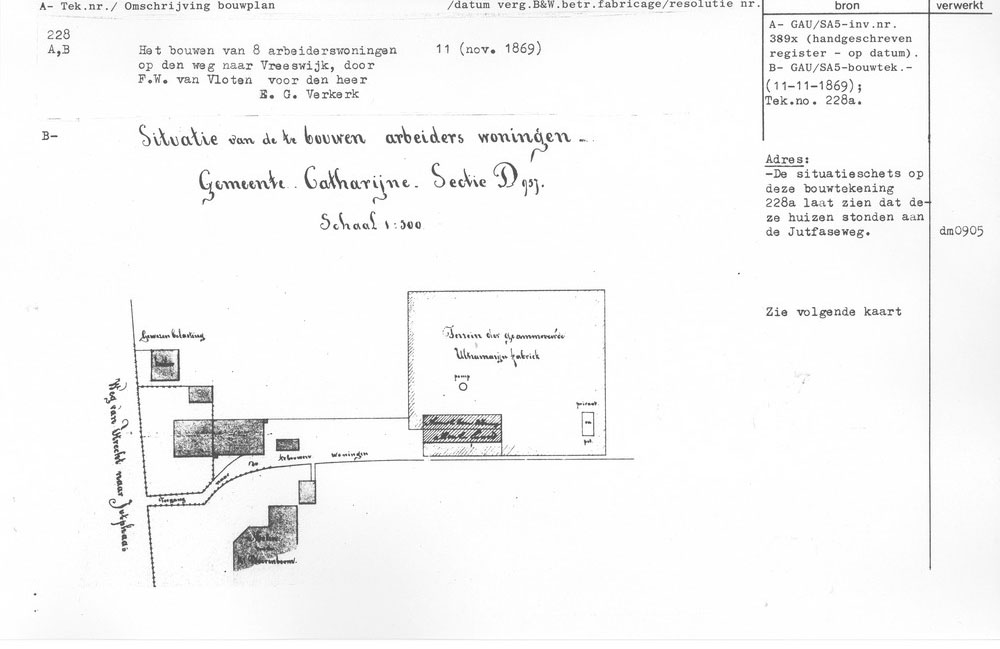 A- Tek.nr./ Omschrijving bouwplan /datum verg.B&W.betr.fabricage/resolutie nr. bron verwerkt
228
A,B
Het bouwen van 8 arbeiderswoningen 11 (nov. 1869)
op den weg naar Vreeswijk, door
F.W. van Vloten voor den heer
E. G. Verkerk
A- GAU/SA5-inv.nr.
389x (handgeschreven
register - op datum).
B- GAU/SA5-bouwtek.-
(11-11-1869);
Tek.no. 228a.
B-
Situatie van de te bouwen arbeiders woningen
Gemeente Catharijne. Sectie D 957.
Schaal 1:500
Adres:
-De situatieschets op
deze bouwtekening
228a laat zien dat de-
ze huizen stonden aan
de Jutfaseweg.
dm0905
Zie volgende kaart
Terrein der gesammeerde
Ultramarijn fabriek
pomp
privaat
en
put
Weg van Utrecht naar Jutphaas
Toegang naar de te bouwen woningen